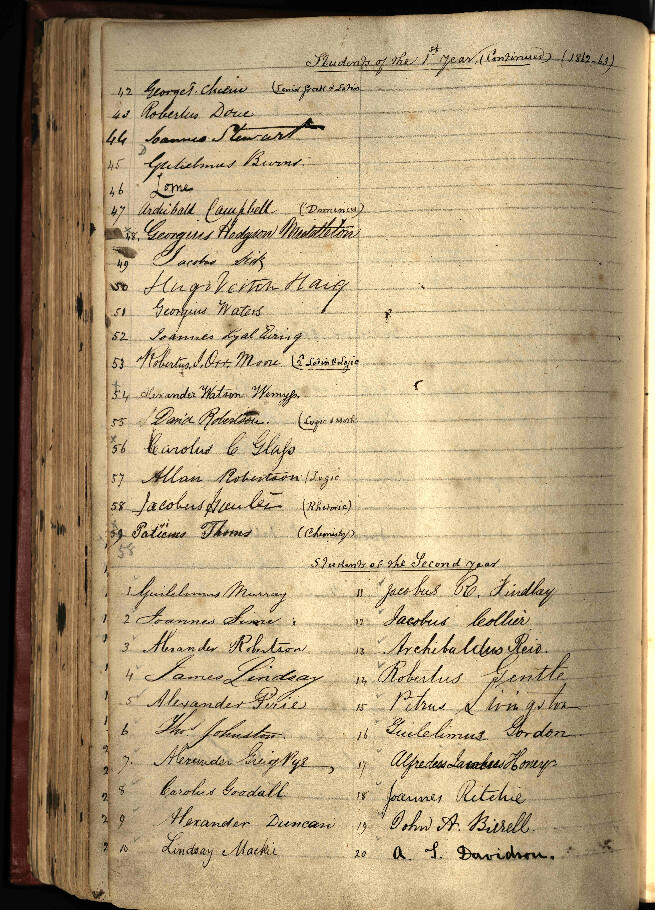 Students of the 1st Year (Continued) (1862-63)
42 George T. (Senior Greek & Latin
43 Robertus Dove
44 Joannes Stewart
45 Gulielmus Burns.
46 Lorne
47 Archibald Campbell (Dominus)
48. Georgius Hodgson Middleton
49 Jacobus
50 Hugo Veitch Haig
51 Georgius Waters
52 Joannes Lyal Ewing
53 Robertus J. Orr Moore (2 Latin & Logic
54 Alexander Watson Wemyss.
55 David Robertson. (Logic &
56 Carolus C Glass
57 Allan Robertson (Logic
58 Jacobus (Rhetoric)
59 Patricius Thoms (Chemistry)
58
Students of the Second Year
1 Guilelmus Murray
2 Joannes
3 Alexander Robertson
4 James Lindsay
5 Alexander Pirie
6 Thos Johnston
7. Alexander Greig Pye
8 Carolus Goodall
9 Alexander Duncan
10 Lindsay Mackie
11 Jacobus R. Findlay
12 Jacobus Collier
13 Archibaldus Reid.
14 Robertus Gentle
15 Petrus Livingston
16 Guilelimus Gordon
17 Alfredus Jacobus Honey
18 Joannes Ritchie
19 John A. Birrell.
20 A. T. Davidson.